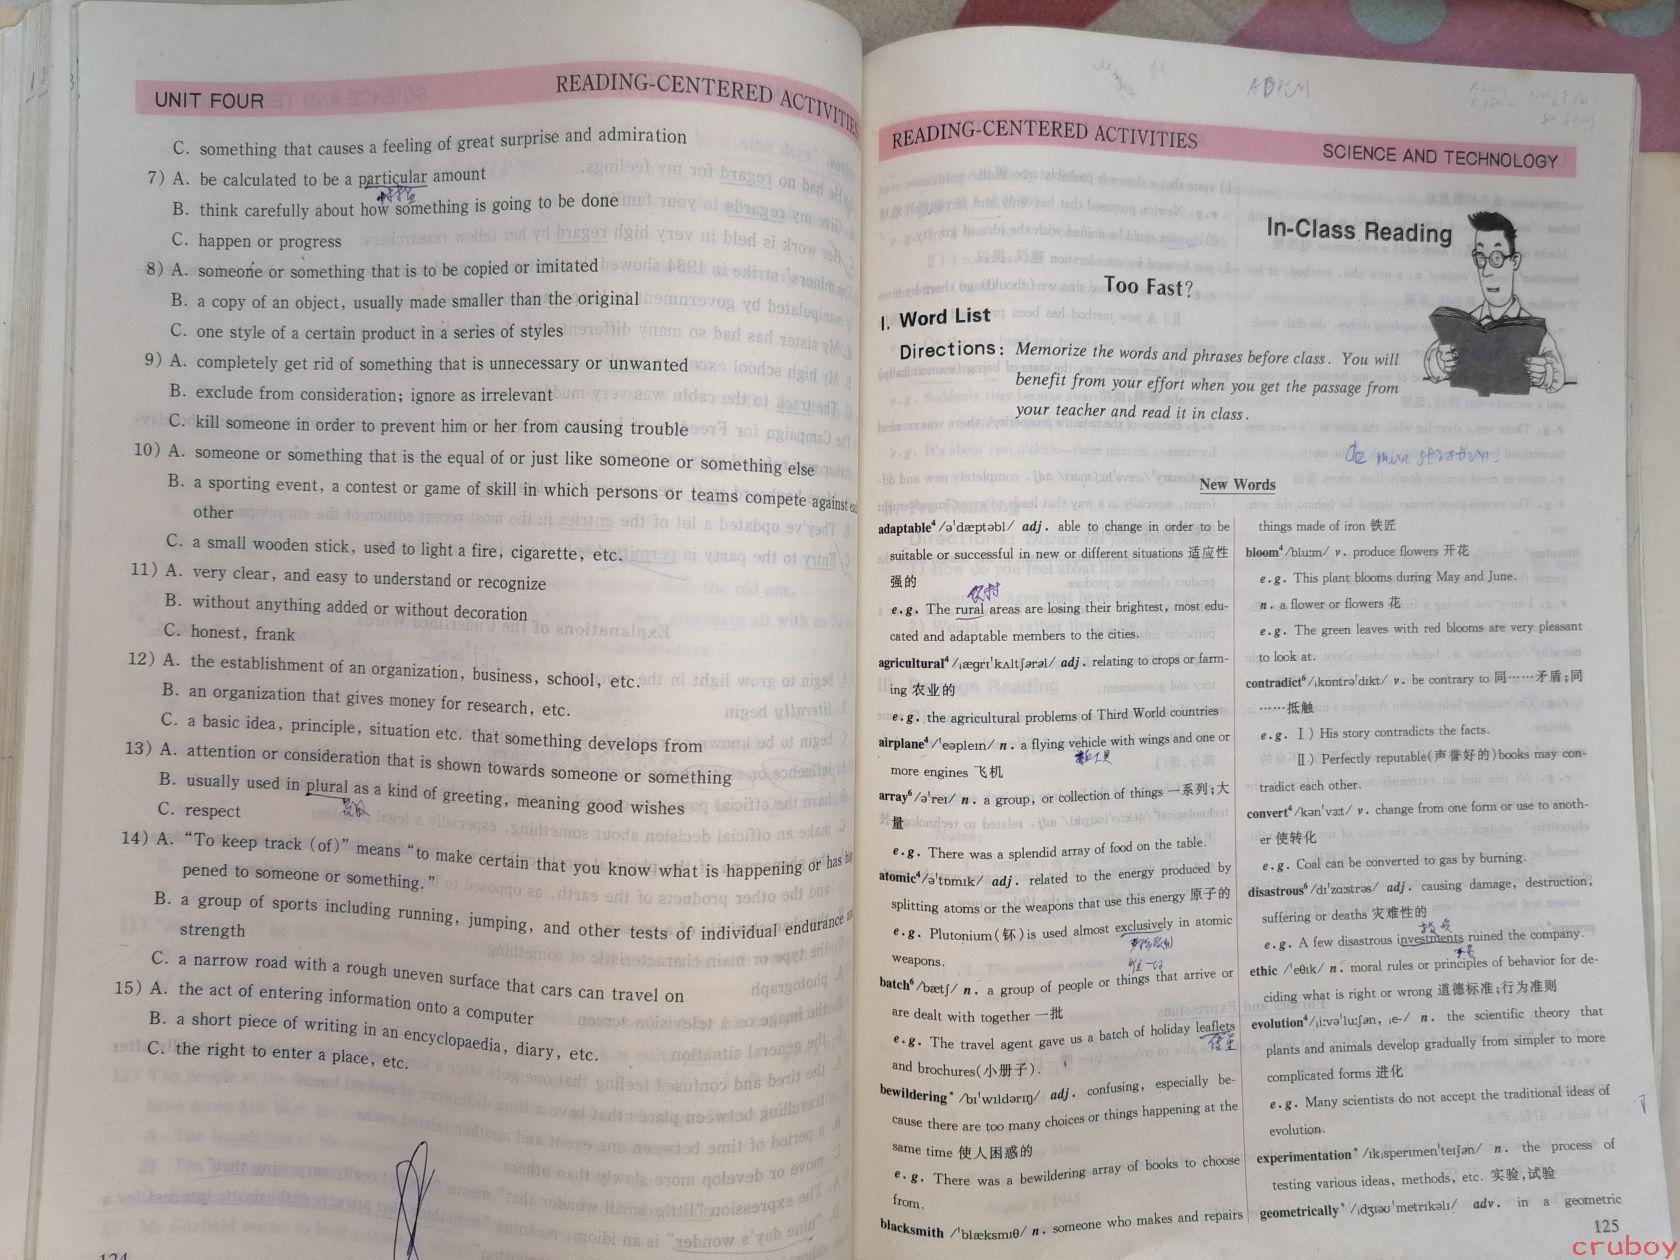 UNIT FOUR
READING-CENTERED ACTIVITIES
C. something that causes a feeling of great surprise and admiration
7) A. be calculated to be a particular amount
B. think carefully about how something is going to be done
C. happen or progress
8) A. someone or something that is to be copied or imitated
B. a copy of an object, usually made smaller than the original
C. one style of a certain product in a series of styles
9) A. completely get rid of something that is unnecessary or unwanted
B. exclude from consideration; ignore as irrelevant
C. kill someone in order to prevent him or her from causing trouble
10) A. someone or something that is the equal of or just like someone or something else
B. a sporting event, a contest or game of skill in which persons or teams compete against
other
C. a small wooden stick, used to light a fire, cigarette, etc.
11) A. very clear, and easy to understand or recognize
B. without anything added or without decoration
C. honest, frank
12) A. the establishment of an organization, business, school, etc.
B. an organization that gives money for research, etc.
C. a basic idea, principle, situation etc. that something develops from
13) A. attention or consideration that is shown towards someone or something
B. usually used in plural as a kind of greeting, meaning good wishes
复数
C. respect
14) A. “To keep track (of)” means “to make certain that you know what is happening or has
pened to someone or something.”
B. a group of sports including running, jumping, and other tests of individual endurance
strength
C. a narrow road with a rough uneven surface that cars can travel on
15) A. the act of entering information onto a computer
B. a short piece of writing in an encyclopaedia, diary, etc.
C. the right to enter a place, etc.
124
READING-CENTERED ACTIVITIES
SCIENCE AND TECHNOLOGY
In-Class Reading
Too Fast?
I. Word List
Directions: Memorize the words and phrases before class. You will
benefit from your effort when you get the passage from
your teacher and read it in class.
New Words
adaptable⁴ /ə'dæptəbl/ adj. able to change in order to be
suitable or successful in new or different situations 适应性
强的
农村
e.g. The rural areas are losing their brightest, most edu-
cated and adaptable members to the cities.
agricultural⁴ /ˌægrɪ'kʌltʃərəl/ adj. relating to crops or farm-
ing 农业的
e.g. the agricultural problems of Third World countries
airplane⁴ /'eəpleɪn/ n. a flying vehicle with wings and one or
more engines 飞机
array⁶ /ə'reɪ/ n. a group, or collection of things 一系列;大
量
e.g. There was a splendid array of food on the table.
atomic⁴ /ə'tɒmɪk/ adj. related to the energy produced by
splitting atoms or the weapons that use this energy 原子的
e.g. Plutonium(钚)is used almost exclusively in atomic
weapons.
batch⁶ /bætʃ/ n. a group of people or things that arrive or
are dealt with together 一批
e.g. The travel agent gave us a batch of holiday leaflets
and brochures(小册子).
bewildering* /bɪ'wɪldərɪŋ/ adj. confusing, especially be-
cause there are too many choices or things happening at the
same time 使人困惑的
e.g. There was a bewildering array of books to choose
from.
blacksmith /'blæksmɪθ/ n. someone who makes and repairs
things made of iron 铁匠
bloom⁴ /bluːm/ v. produce flowers 开花
e.g. This plant blooms during May and June.
n. a flower or flowers 花
e.g. The green leaves with red blooms are very pleasant
to look at.
contradict⁶ /ˌkɒntrə'dɪkt/ v. be contrary to 同……矛盾;同
……抵触
e.g. Ⅰ) His story contradicts the facts.
Ⅱ) Perfectly reputable(声誉好的)books may con-
tradict each other.
convert⁴ /kən'vɜːt/ v. change from one form or use to anoth-
er 使转化
e.g. Coal can be converted to gas by burning.
disastrous⁶ /dɪ'zɑːstrəs/ adj. causing damage, destruction,
suffering or deaths 灾难性的
投资
e.g. A few disastrous investments ruined the company.
ethic /'eθɪk/ n. moral rules or principles of behavior for de-
ciding what is right or wrong 道德标准;行为准则
evolution⁴ /ˌiːvə'luːʃən, ˌe-/ n. the scientific theory that
plants and animals develop gradually from simpler to more
complicated forms 进化
e.g. Many scientists do not accept the traditional ideas of
evolution.
experimentation* /ɪkˌsperɪmen'teɪʃən/ n. the process of
testing various ideas, methods, etc. 实验,试验
geometrically* /ˌdʒɪəʊ'metrɪkəlɪ/ adv. in a geometric
125
cruboy